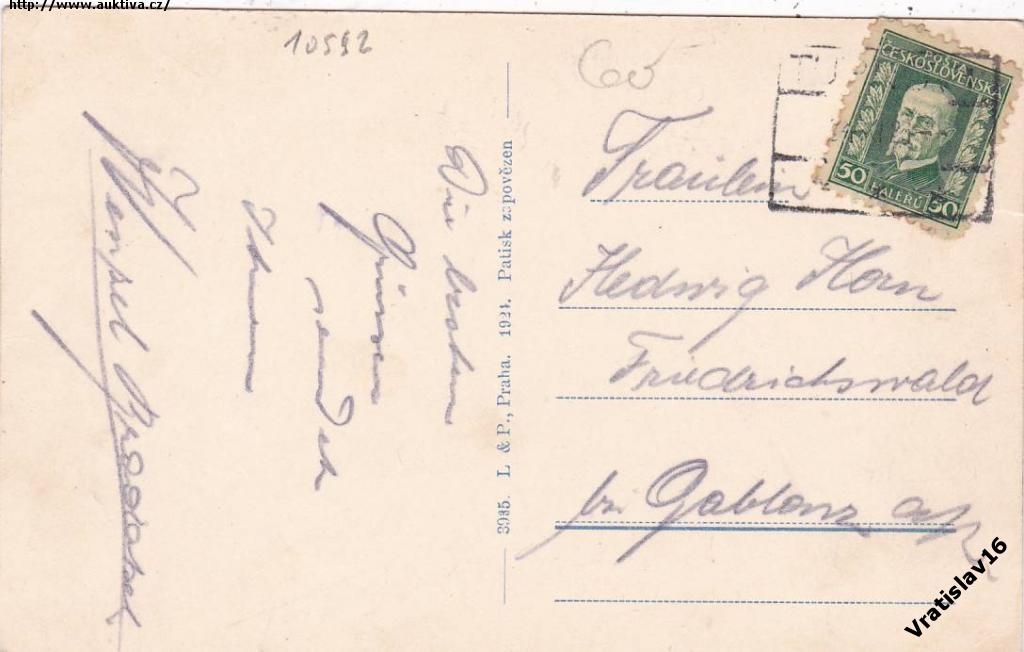 http://www.auktiva.cz/
10592
60
POŠTA
ČESKOSLOVENSKÁ
50 HALÉŘŮ 50
Die besten
Grüsse
sendet
Ihnen
Wenzel
3985. L & P., Praha. 1924. Patisk zapovězen
Fräulein
Hedwig Horn
Friedrichswald
bei Gablonz a/N
Vratislav16